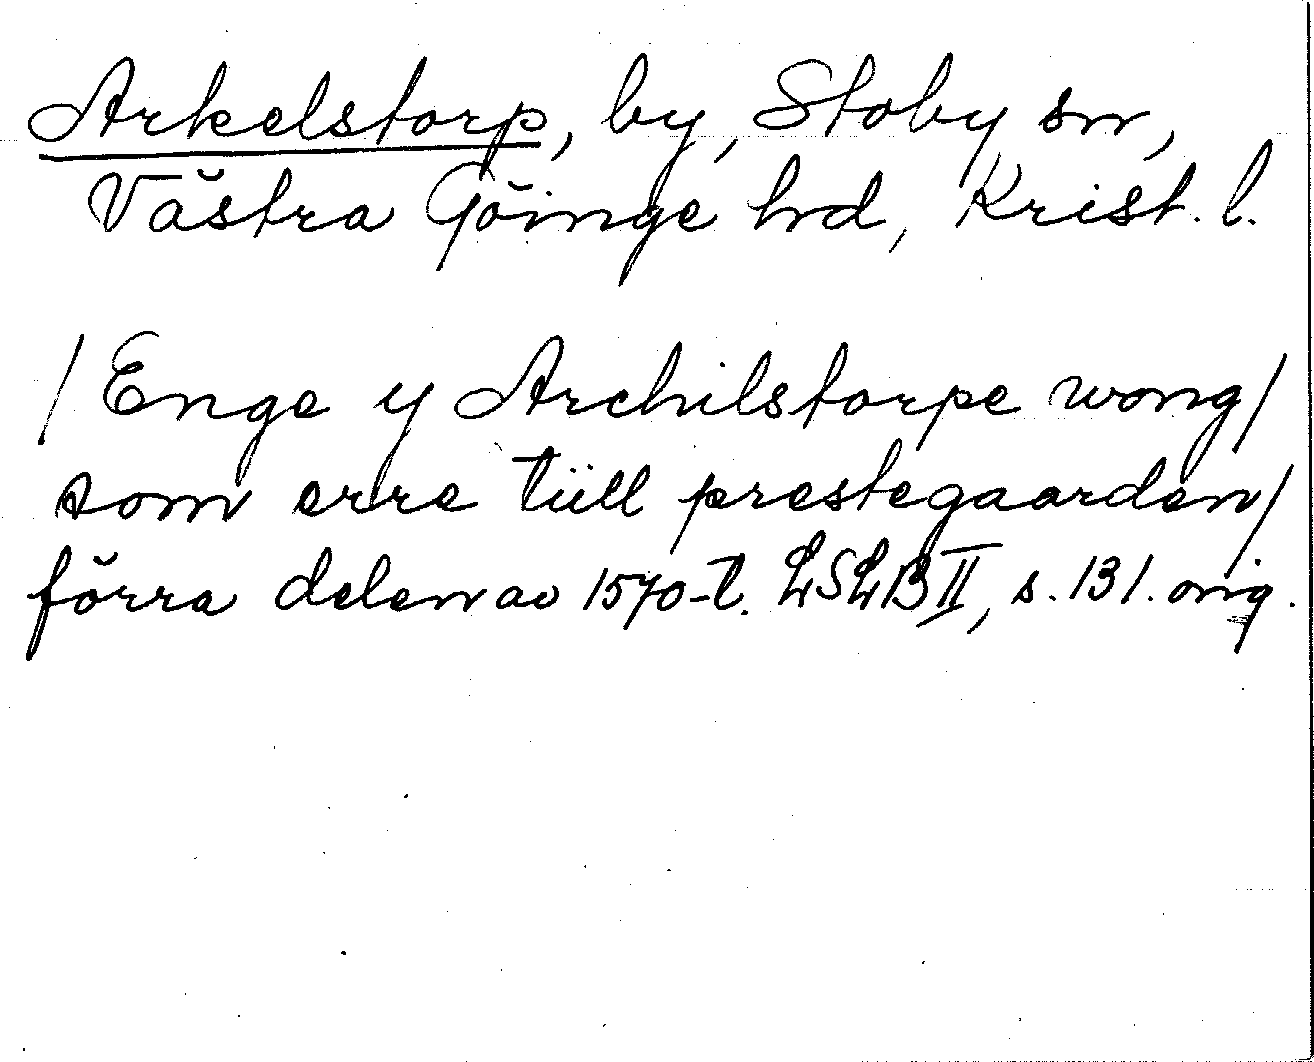 Arkelstorp, by, Stoby sn,
Västra Göinge hd, Krist. l.
/Enge y Archilstorpe wong/
som erre tüll prestegaarden/
förra delen av 1570-t. LSLB II, s. 131. orig.